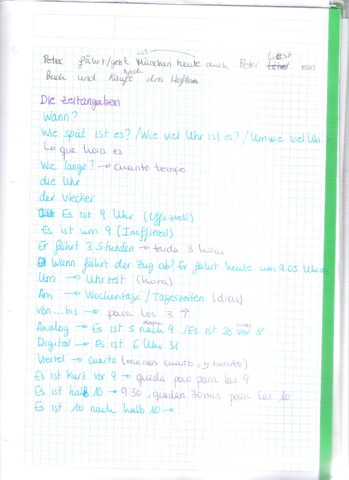 Peter fährt/geht München heute auch. Peter liest ein
Buch und kauft nach drei Heften
Die Zeitangaben
Wann?
Wie spät ist es? /Wie viel Uhr ist es? / Um wie viel Uhr
Lo que hora es
Wie lange? → cuanto tiempo
die Uhr
der Wecker
Es ist 9 Uhr (Offiziell)
Es ist um 9 (Inoffiziell)
Er fährt 3 Stunden → tarda 3 horas
Wann fährt der Zug ab? Er fährt heute um 9.05 Uhr
Um → Uhrzeit (hora)
Am → Wochentage / Tageszeiten (dias)
von...bis → para los 3
Analog → Es ist 5 nach 9 / Es ist 20 vor 8
Digital → Es ist 6 Uhr 31
Viertel → cuarto (menos cuarto, y cuarto)
Es ist kurz vor 9 → queda poco para las 9
Es ist halb 10 → 9:30, quedan 30 min para las 10
Es ist 10 nach halb 10 →